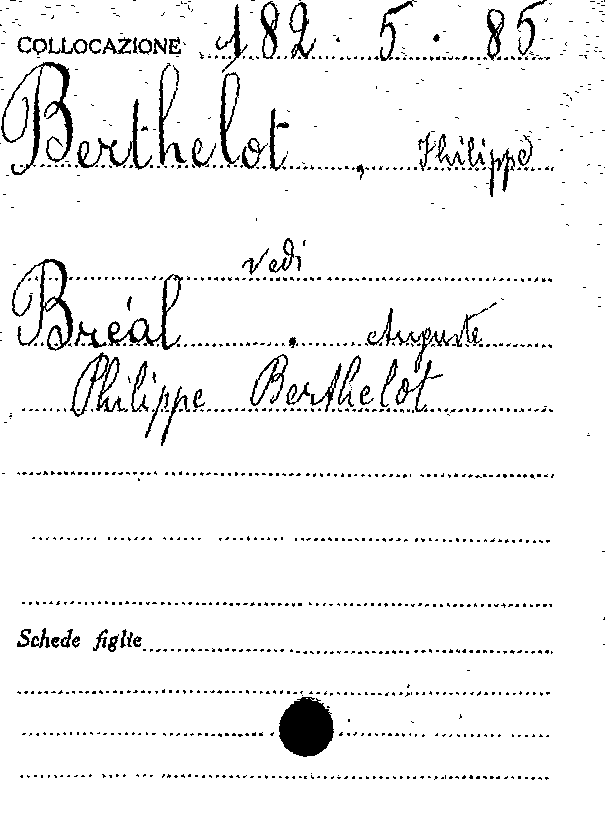 COLLOCAZIONE 182. 5. 85
Berthelot, Philippe
vedi
Bréal, Auguste
Philippe Berthelot
Schede figlie